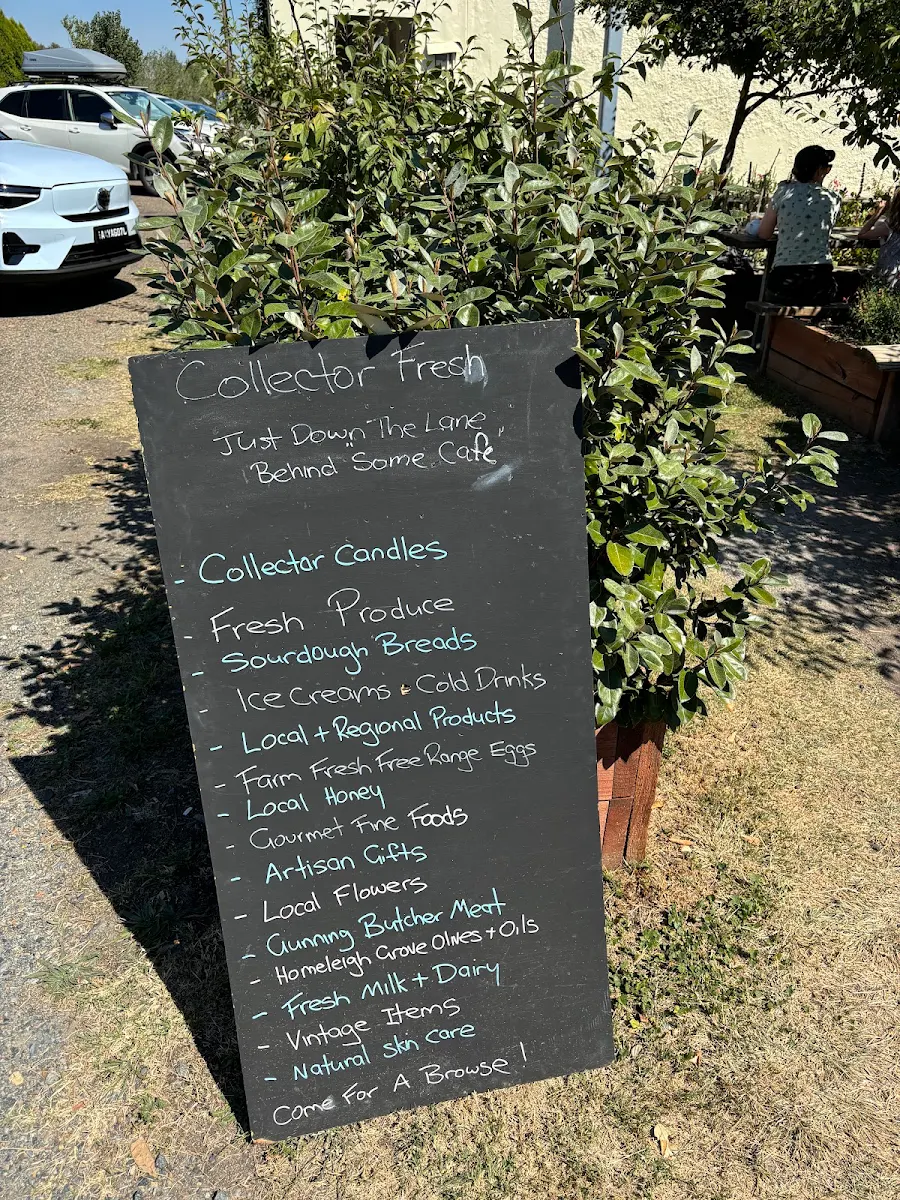 Collector Fresh
Just Down The Lane
"Behind Some Cafe"
- Collector Candles
- Fresh Produce
- Sourdough Breads
- Ice Creams & Cold Drinks
- Local + Regional Products
- Farm Fresh Free Range Eggs
- Local Honey
- Gourmet Fine Foods
- Artisan Gifts
- Local Flowers
- Gunning Butcher Meat
- Homeleigh Grove Olives + Oils
- Fresh Milk + Dairy
- Vintage Items
- Natural Skin care
Come For A Browse!